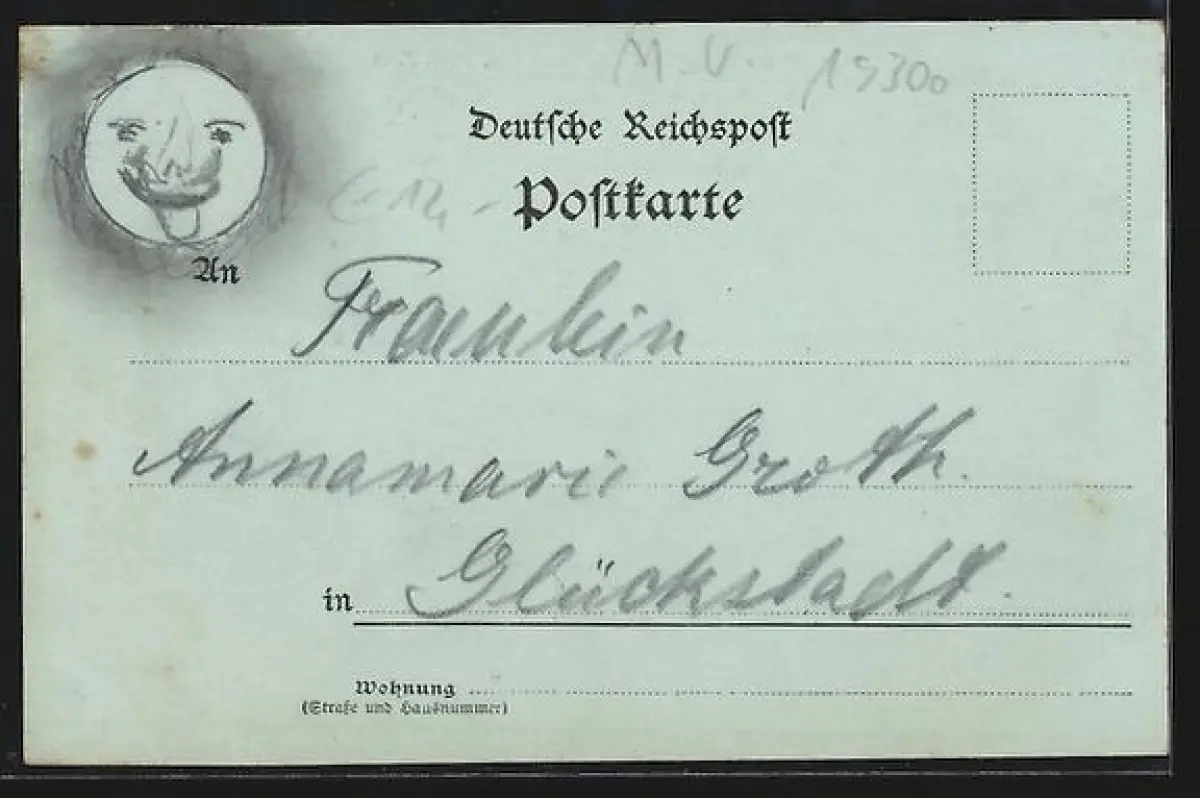 M.V. 19300
Deutsche Reichspost
Postkarte
An
Fraeulein
Annamarie Groth.
in Glückstadt.
Wohnung
(Straße und Hausnummer)